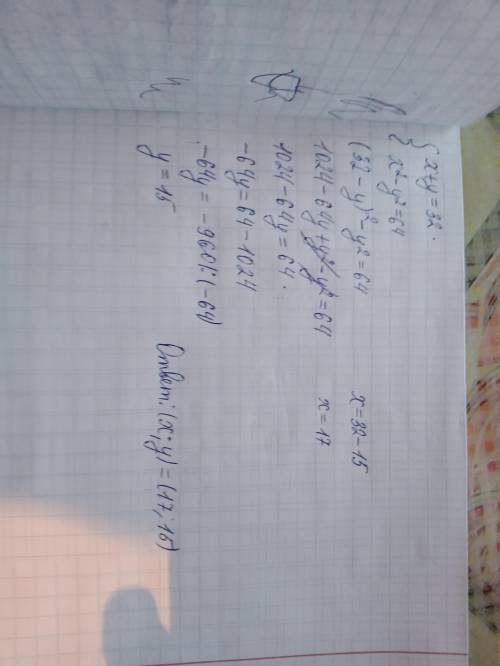 { x+y=32.
x²-y²=64
(32-y)²-y²=64
1024-64y+y²-y²=64
1024-64y=64.
-64y=64-1024
-64y=-960:(-64)
y=15
x=32-15
x=17
Ответ: (x;y)=(17;15)